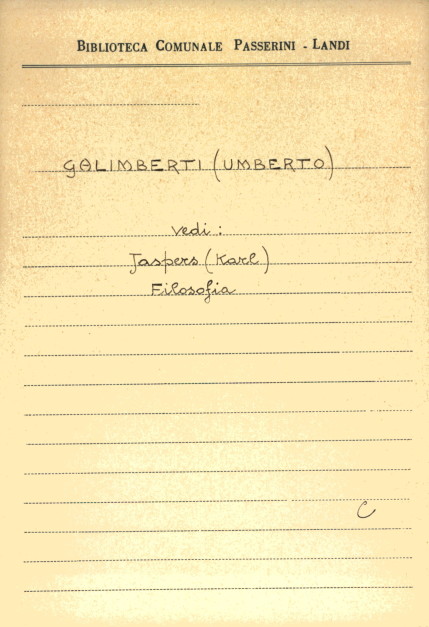 BIBLIOTECA COMUNALE PASSERINI - LANDI
GALIMBERTI (UMBERTO)
vedi :
Jaspers (Karl)
Filosofia
C